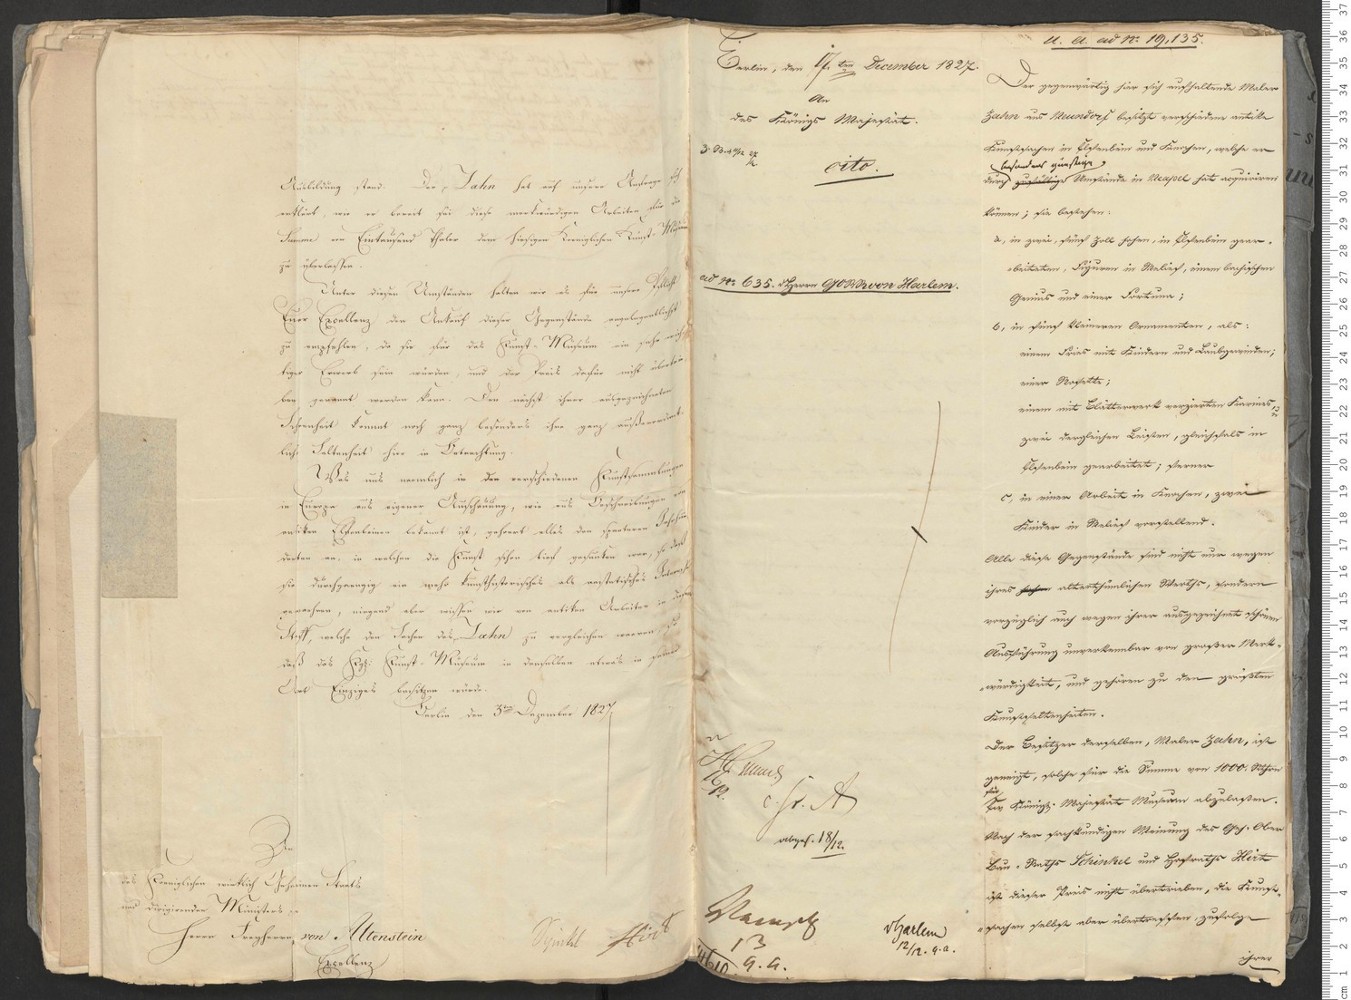 Ausbildung stand. Der Zahn hat auf unsere Anfrage sich
erklärt, wie er bereit sei diese merkwürdigen Arbeiten für die
Summe von Eintausend Thaler dem hiesigen Königlichen Kunst-Museum
zu überlassen.
Unter diesen Umständen halten wir es für unsere Pflicht
Euer Excellenz den Ankauf dieser Gegenstände angelegentlichst
zu empfehlen, da sie für das Kunst-Museum ein sehr wich-
tiger Erwerb sein würden, und der Preis dafür nicht übertrie-
ben genannt werden kann. Denn nächst ihrer ausgezeichneten
Schönheit kommt noch ganz besonders ihre ganz außerordent-
liche Seltenheit hier in Betrachtung.
Was uns nemlich in den verschiedenen Kunstsammlungen
in Europa aus eigener Anschauung, wie aus Beschreibungen von
antiken Elfenbeinen bekannt ist, gehört alles den späteren Jahrhun-
derten an, in welchen die Kunst schon tief gesunken war, so daß
sie durchgängig ein mehr kunsthistorisches als aesthetisches Interesse
gewähren, nirgend aber wissen wir von antiken Arbeiten in diesem
Stoff, welche den Sachen des Zahn zu vergleichen wären, so
daß das Kgl. Kunst-Museum in denselben etwas in seiner
Art Einziges besitzen würde.
Berlin den 3ten Dezember 1827
An
des Königlichen wirklich Geheimen Staats
und dirigirenden Ministers
Herrn Freyherrn von Altenstein
Excellenz
Schinkel Hirt
Berlin, den 17ten December 1827.
An
des Königs Majestät.
cito.
ad No. 635. Herrn GORR von Harlem.
abges. 18/12.
Kamptz
13
9. a.
vHarlem
12/12. 9. a.
U. a. ad No. 19,135.
Der gegenwärtig hier sich aufhaltende Maler
Zahn aus Neundorf besitzt verschiedene antike
Kunstsachen in Elfenbein und Knochen, welche er
besonders günstige
durch Umstände in Neapel hat acquiriren
können; sie bestehen:
a, in zwei, fünf Zoll hohen, in Elfenbein gear-
beiteten, Figuren in Relief, einem bachischen
Genius und einer Fortuna;
b, in fünf kleineren Ornamenten, als:
einem Fries mit Kindern und Laubgewinden;
einer Rosette;
einem mit Blätterwerk verzierten Karnies;
zwei dergleichen Leisten, gleichfals in
Elfenbein gearbeitet; ferner
c, in einer Arbeit in Knochen, zwei
Kinder in Relief vorstellend.
Alle diese Gegenstände sind nicht nur wegen
ihres alterthümlichen Werths, sondern
vorzüglich auch wegen ihrer ausgezeichnet schönen
Ausführung unverkennbar von großer Merk-
würdigkeit, und gehören zu den größten
Kunstseltenheiten.
Der Besitzer derselben, Maler Zahn, ist
geneigt, solche für die Summe von 1000. Rthlrn
für
Ew. Königl. Majestät Museum abzulassen.
Nach der sachkundigen Meinung des Geh. Ober
Bau-Raths Schinkel und Hofraths Hirt
ist dieser Preis nicht übertrieben, die Kunst-
sachen selbst aber übertreffen, zufolge
ihrer